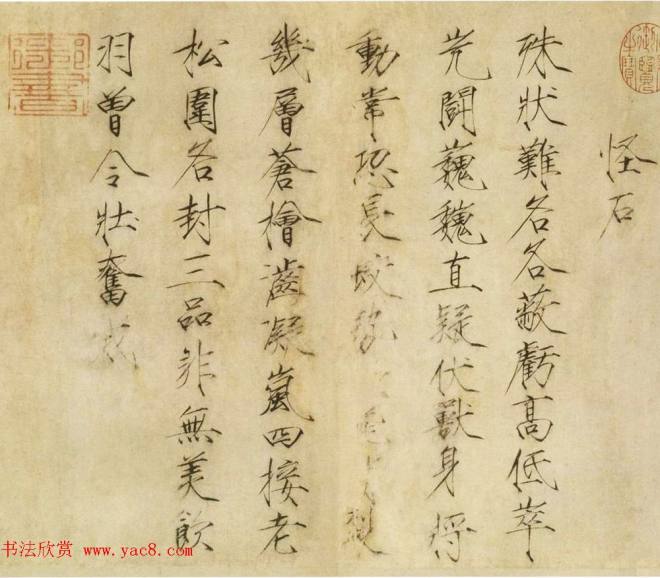 怪石
殊狀難名各蔽虧高低崒
兀鬪巍巍直疑伏獸身將
動常恐長蛟勢
幾層蒼檜凝嵐四接老
松圍名封三品非無美飲
羽曾令壯奮威
书法欣赏 www.yac8.com